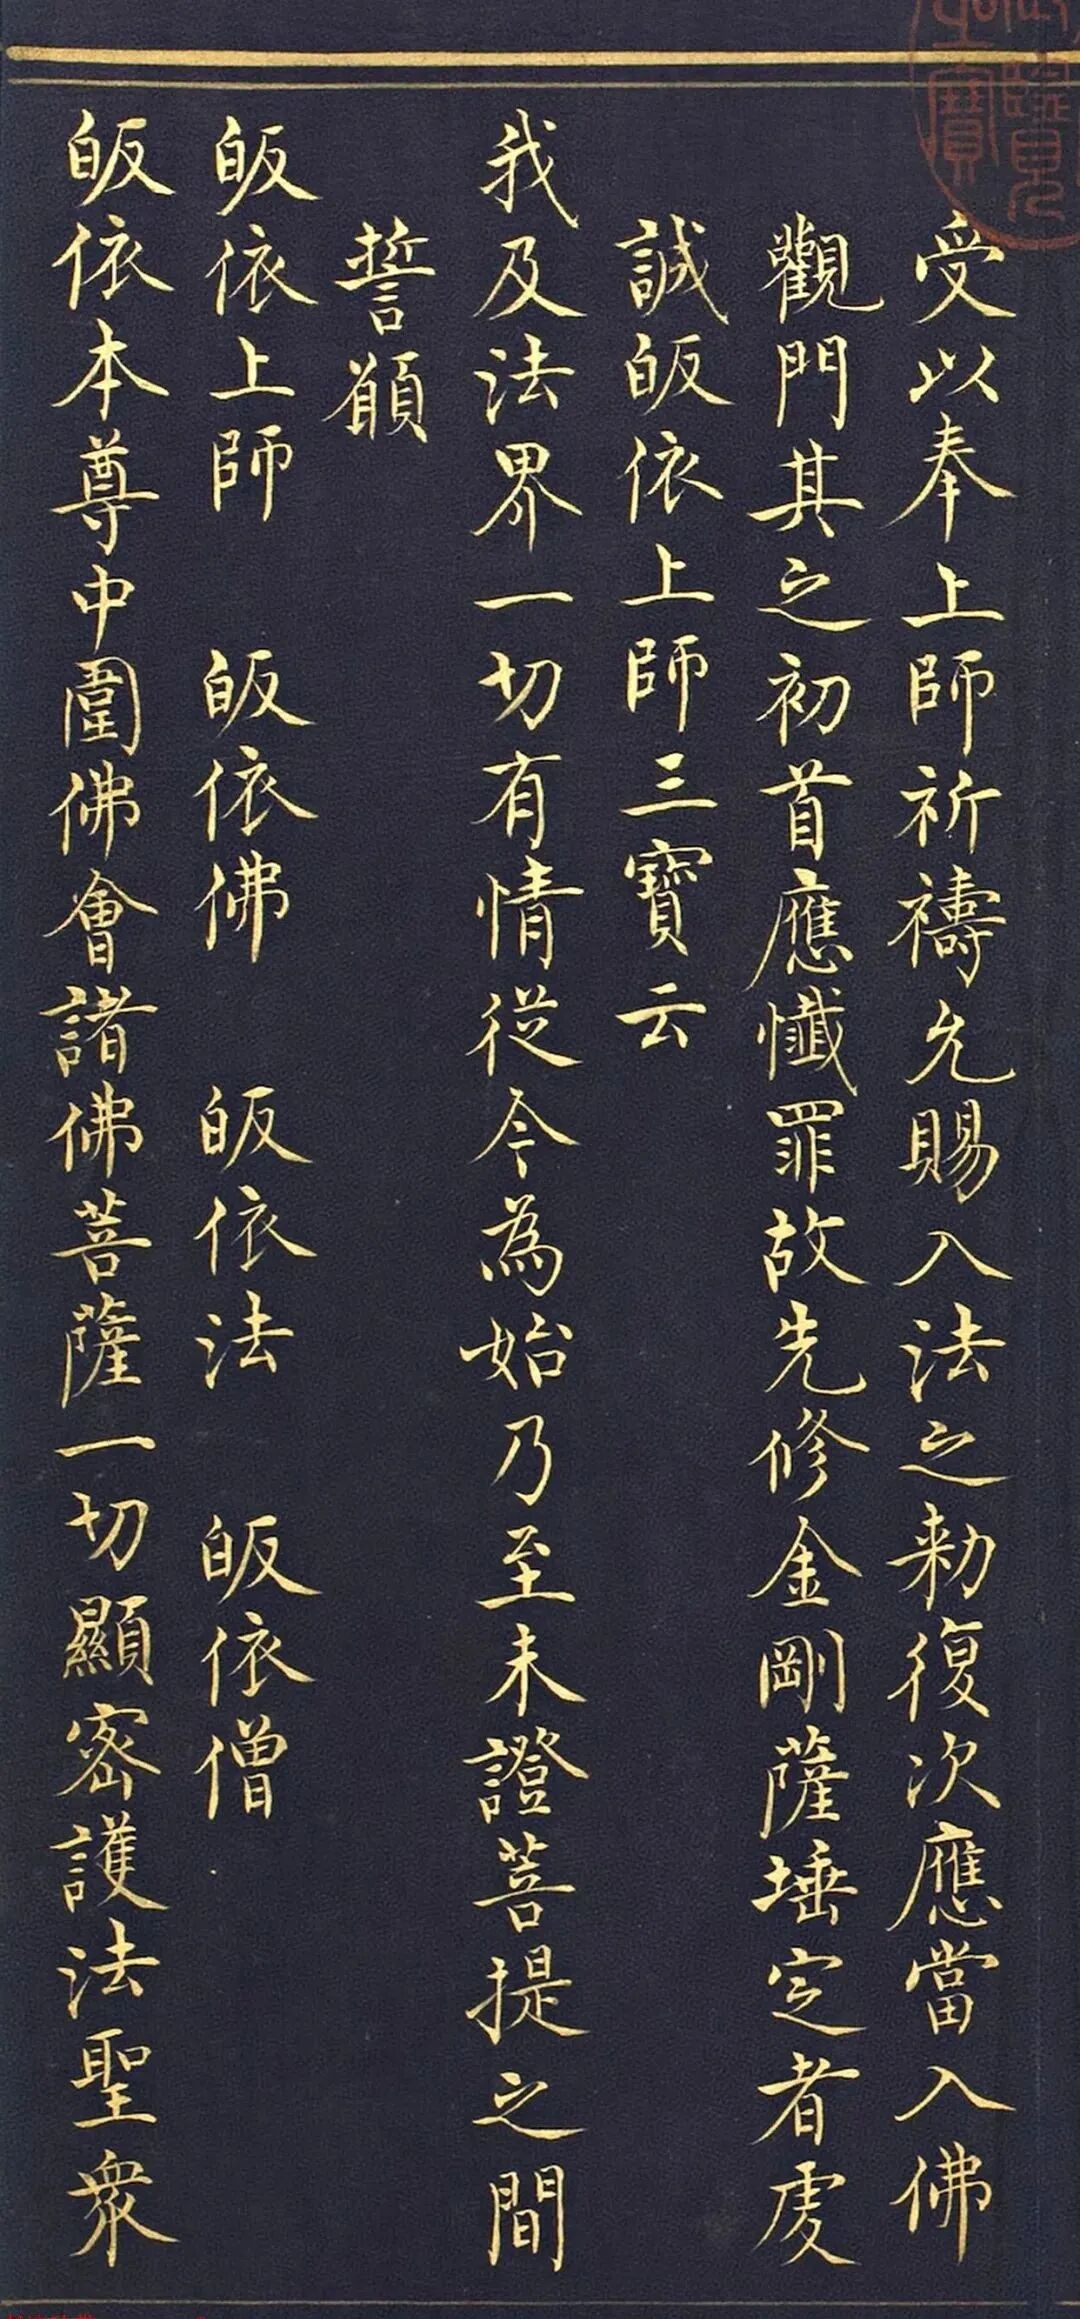 受以奉上師祈禱允賜入法之勅復次應當入佛
觀門其之初首應懺罪故先修金剛薩埵定者虔
誠皈依上師三寶云
我及法界一切有情從今為始乃至未證菩提之間
誓願
皈依上師 皈依佛 皈依法 皈依僧
皈依本尊中圍佛會諸佛菩薩一切顯密護法聖衆